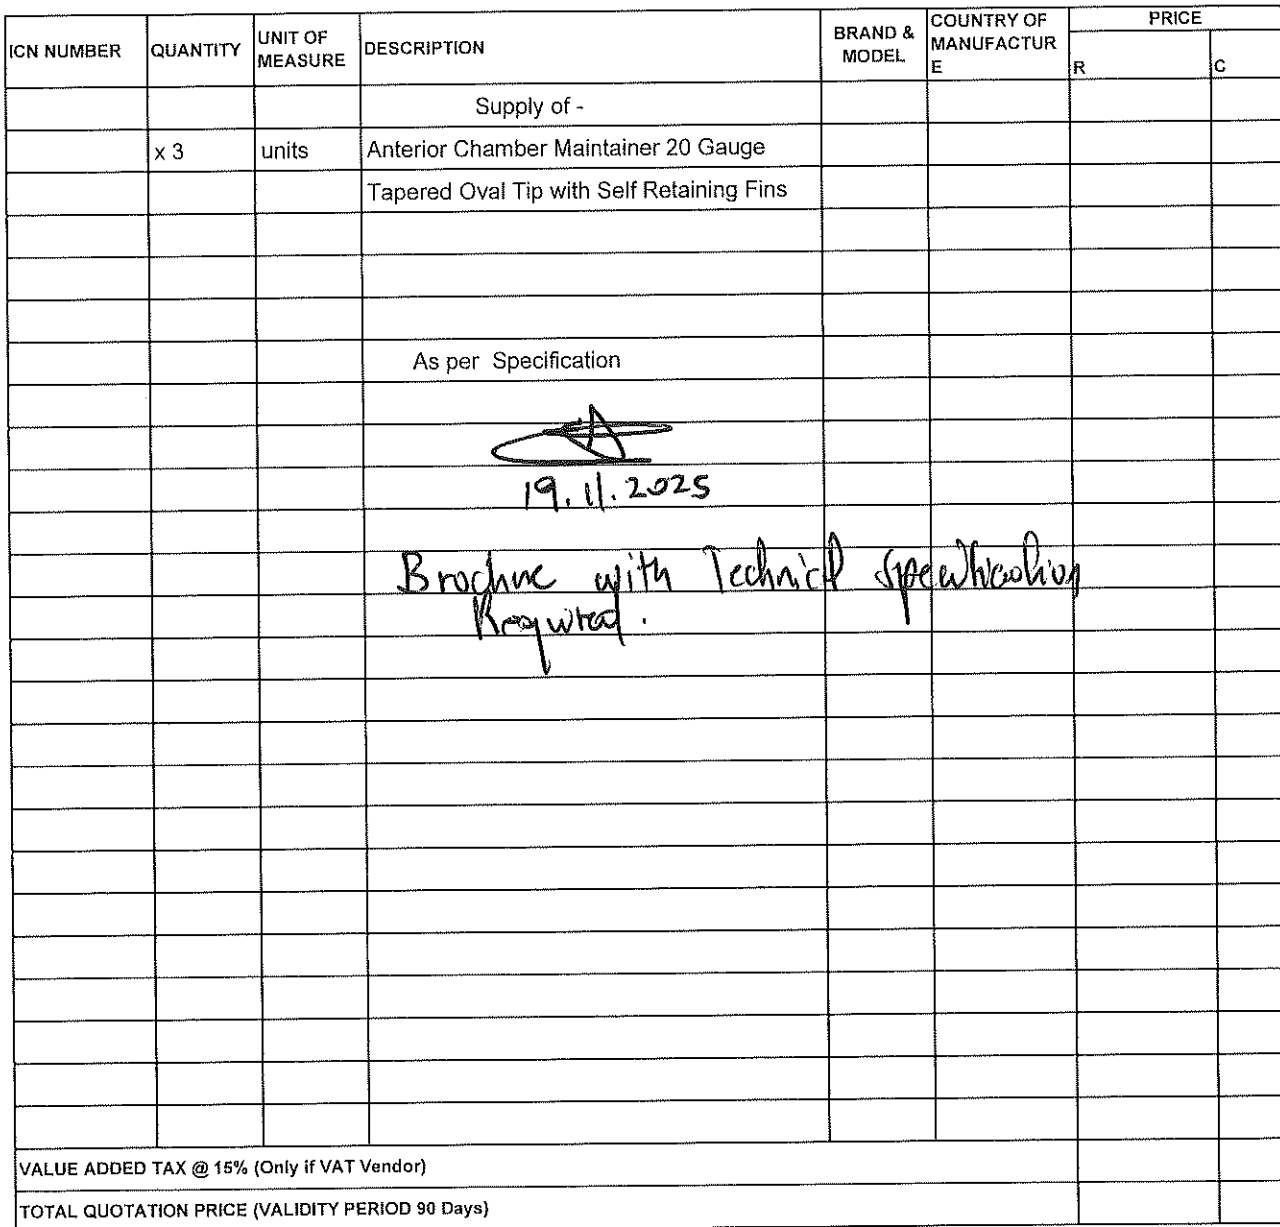 ICN NUMBER QUANTITY UNIT OF MEASURE DESCRIPTION BRAND & MODEL COUNTRY OF MANUFACTUR E PRICE R C
Supply of -
x 3 units Anterior Chamber Maintainer 20 Gauge
Tapered Oval Tip with Self Retaining Fins
As per Specification
19.11.2025
Brochure with Technical Specification
Required.
VALUE ADDED TAX @ 15% (Only if VAT Vendor)
TOTAL QUOTATION PRICE (VALIDITY PERIOD 90 Days)